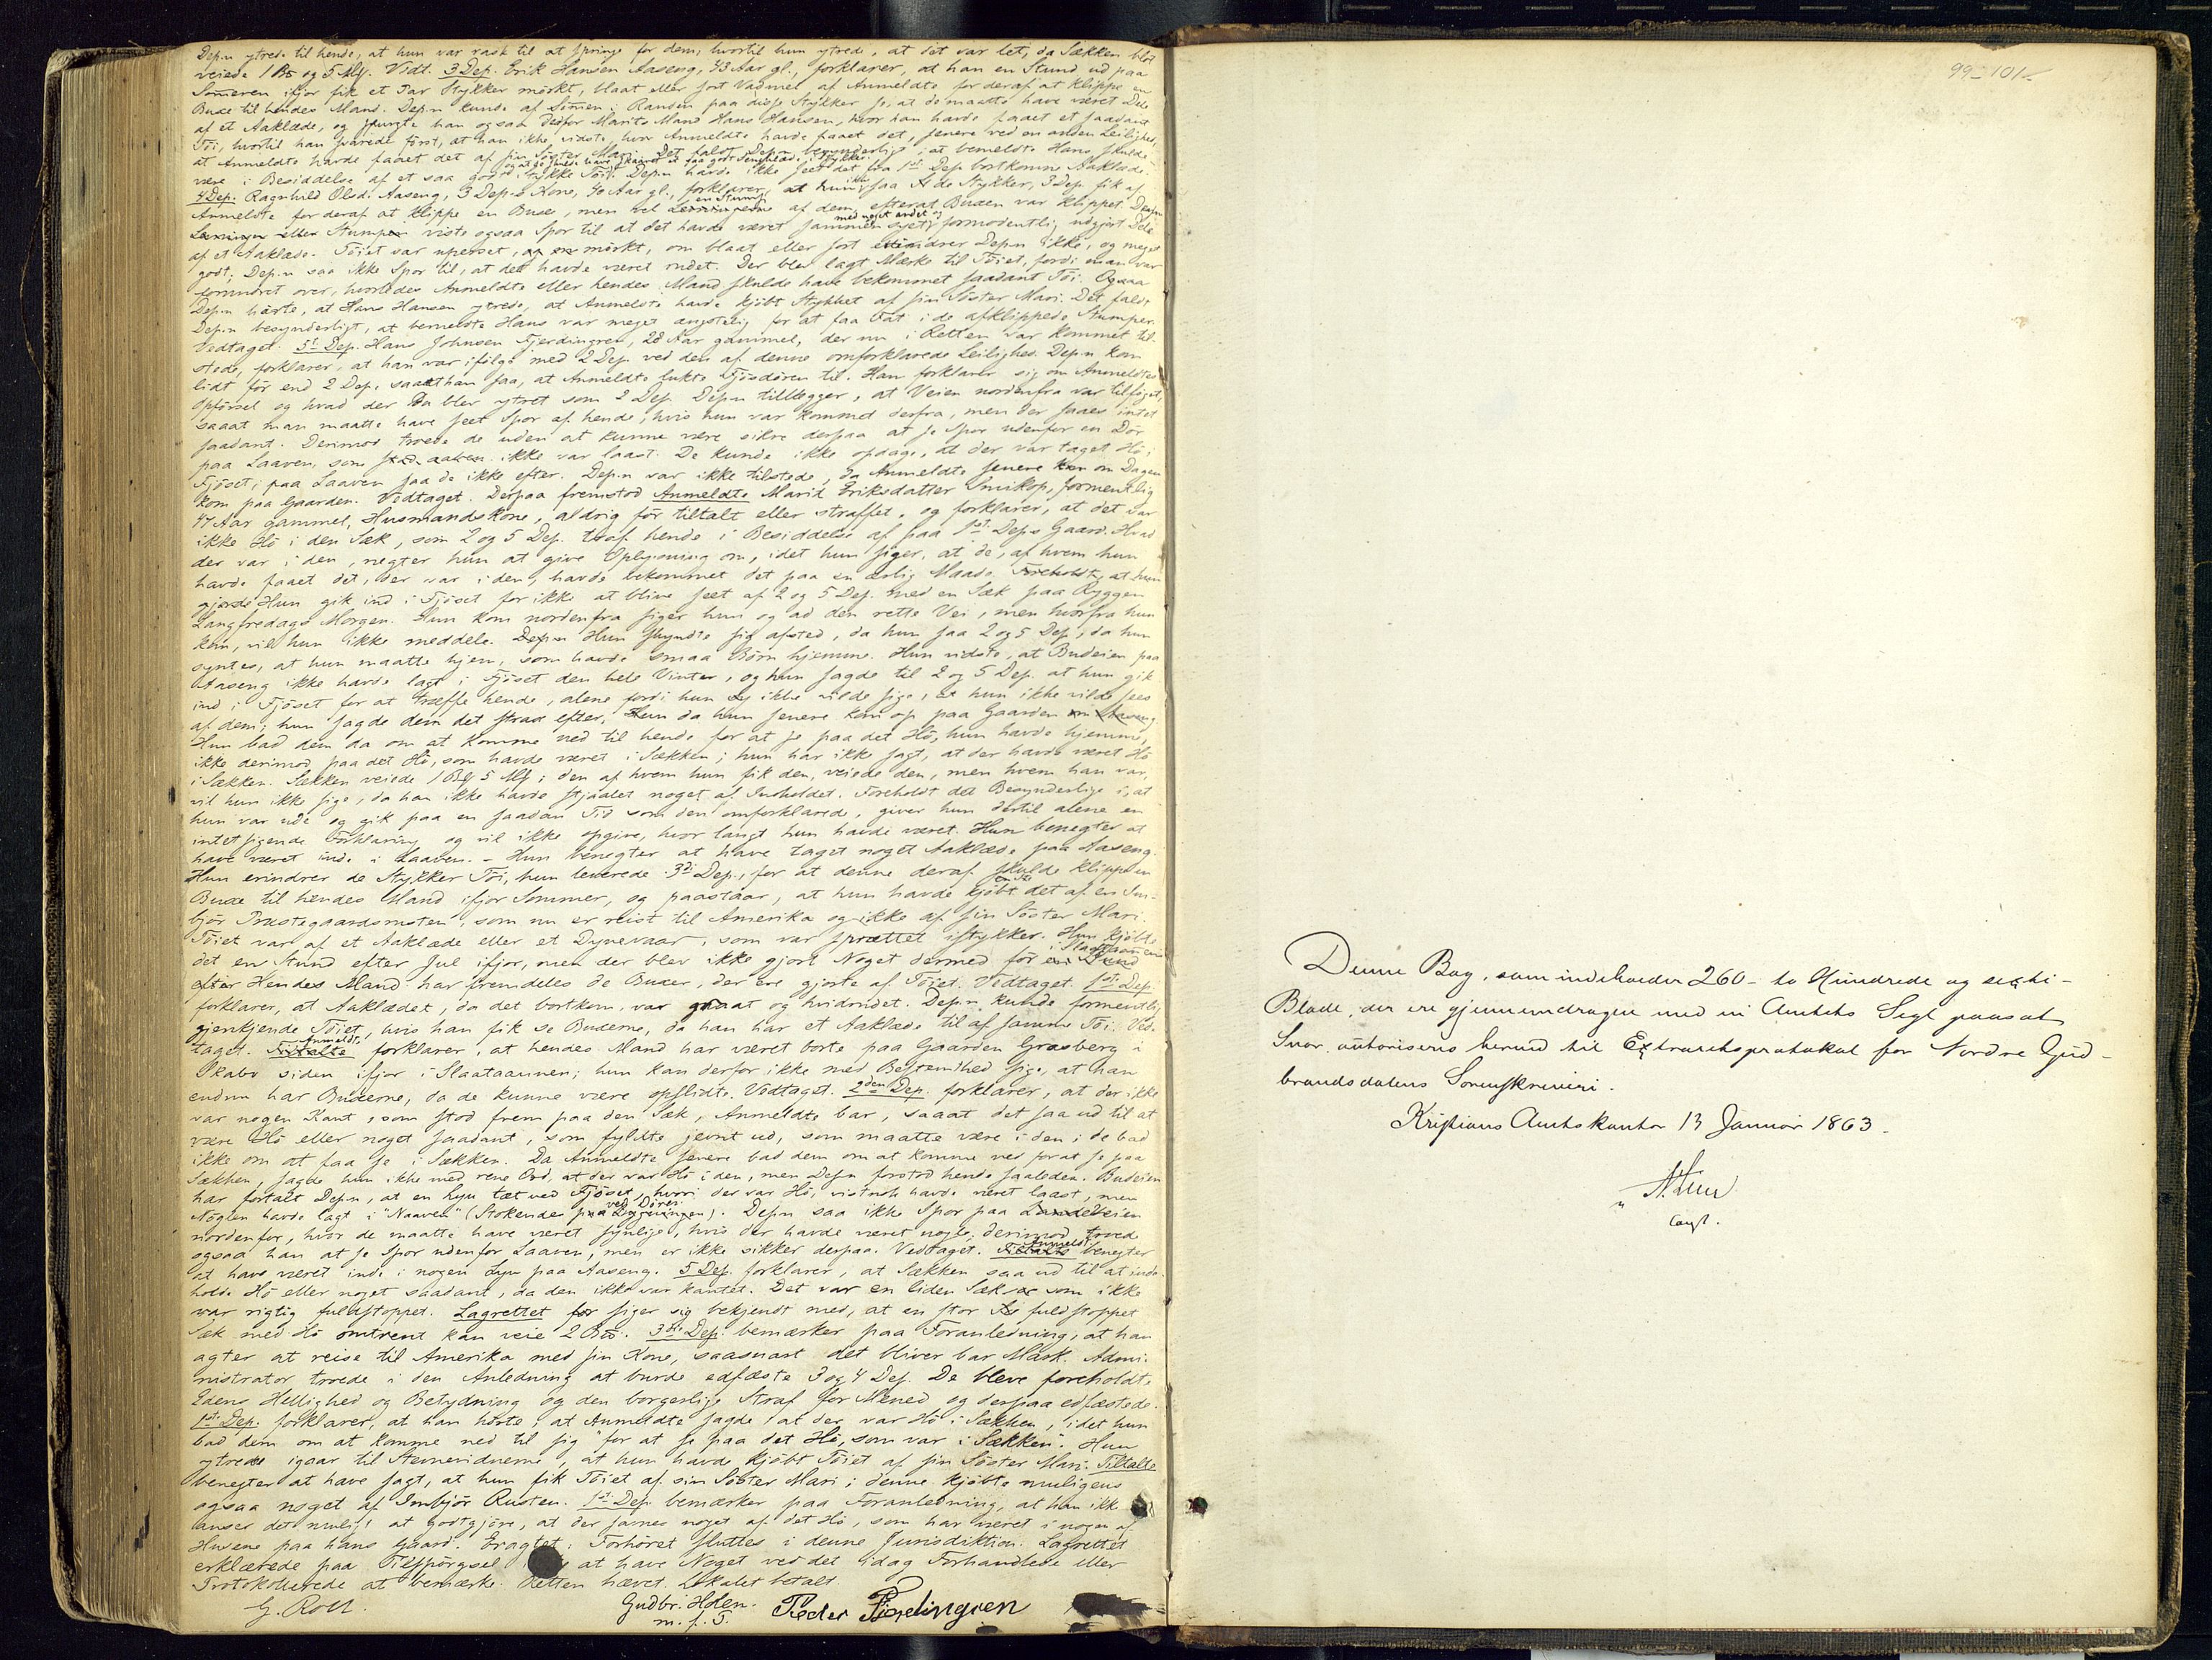 Dep.n ytrede til hende, at hun var rask til at springe for dem, hvortil hun ytrede, at det var let, da Sækken blot
veiede 1 Bp og 5 Mk. Vedt. 3 Dep. Erik Hansen Aaseng, 43 Aar gl., forklarer, at han en Stund ud paa
Someren ifjor fik et Par Stykker mörkt, blaat eller sort Vadmel af Anmeldte for deraf at klippe en
Buxe til hendes Mand. Dep.n kunde af Sömen i Randen paa disse Stykker se, at de maatte have været Dele
af et Aaklæde, og spurgte han ogsaa derfor Marits Mand Hans Hansen, hvor han havde faaet et saadant
Töi, hvortil han svarede först, at han ikke vidste, hvor Anmeldte havde faaet det, senere ved en anden Leilighed,
at Anmeldte havde faaet det af sin Söster Mari. Det faldt Dep.n besynderligt, at bemeldte Hans skulde
være i Besiddelse af et saa godt Stykke Töi. Dep.n havde ikke seet det fra 1ste Dep. bortkomne Aaklæde.
4 Dep. Ragnhild Olsd. Aaseng, 3 Dep.s Kone, 40 Aar gl., forklarer, at hun ikke saa de Stykker, 3 Dep. fik af
Anmeldte for deraf at klippe en Buxe, men vel en Stump af dem, efterat Buxen var klippet. Denne
Stump viste ogsaa Spor til at det havde været sammensyet med noget andet og formodentlig udgjort Dele
af et Aaklæde. Töiet var uperset, mörkt, om blaat eller sort erindrer Dep.n ikke, og meget
godt; Dep.n saa ikke Spor til, at det havde været rudet. Der blev lagt Mærke til Töiet, fordi man var
forundret over, hvorledes Anmeldte eller hendes Mand skulde have bekommet saadant Töi. Ogsaa
Dep.n hörte, at Hans Hansen ytrede, at Anmeldte havde kjöbt Stykket af sin Söster Mari. Det faldt
Dep.n besynderligt, at bemeldte Hans var meget ængstelig for at faa fat i de afklippede Stumper.
Vedtaget. 5te Dep. Hans Johnsen Fjerdingren, 28 Aar gammel, der nu i Retten var kommet til-
stede, forklarer, at han var ifölge med 2 Dep. ved den af denne omforklarede Leilighed. Dep.n kom
lidt för end 2 Dep. saa at han saa, at Anmeldte lukte Fjösdören til. Han forklarer sig om Anmeldtes
Opförsel og hvad der da blev ytret som 2 Dep. Dep.n tillægger, at Veien nordenfra var tilföget,
saaat man maatte have seet Spor af hende, hvis hun var kommet derfra, men der saaes intet
saadant. Derimod troede de uden at kunne være sikre derpaa at se Spor udenfor en Dör
paa Laaven, som ikke var laast. De kunde ikke opdage, at der var taget Hö i
Fjöset; paa Laaven saa de ikke efter. Dep.n var ikke tilstede, da Anmeldte senere om Dagen
kom paa Gaarden. Vedtaget. Derpaa fremstod Anmeldte Marit Eriksdatter Smikop, formentlig
47 Aar gammel, Husmandskone, aldrig för tiltalt eller straffet, og forklarer, at det var
ikke Hö i den Sæk, som 2 og 5 Dep. traf hende i Besiddelse af paa 1ste Dep.s Gaard. Hvad
der var i den, negter hun at give Oplysning om, idet hun siger, at de, af hvem hun
havde faaet det, der var i den, havde bekommet det paa en ærlig Maade. at hun
Hun gik ind i Fjöset for ikke at blive seet af 2 og 5 Dep. med en Sæk paa Ryggen
Langfredags Morgen. Hun kom nordenfra siger hun og ad den rette Vei, men hvorfra hun
kom, vil hun ikke meddele. Hun skyndte sig afsted, da hun saa 2 og 5 Dep., da hun
syntes, at hun maatte hjem, som havde smaa Börn hjemme. Hun vidste, at Budeien paa
Aaseng ikke havde lagt i Fjöset den hele Vinter, og hun sagde til 2 og 5 Dep. at hun gik
ind i Fjöset for at træffe hende, alene fordi hun ikke vilde sige, at hun ikke vilde sees
af dem; hun sagde dem det strax efter, da hun senere kom op paa Gaarden
Hun bad dem da om at komme ned til hende for at se paa det Hö, hun havde hjemme,
ikke derimod paa det Hö, som havde været i Sækken; hun har ikke sagt, at der havde været Hö
i Sækken. Sækken veiede 1 Bp 5 Mk; den af hvem hun fik den, veiede den, men hvem han var,
vil hun ikke sige, da han ikke havde stjaalet noget af Indholdet. Foreholdt det Besynderlige i, at
hun var ude og gik paa en saadan Tid som den omforklarede, giver hun dertil alene en
intetsigende Forklaring og vil ikke opgive, hvor langt hun havde været. Hun benegter at
have været inde i Laaven. – Hun benegter at have taget noget Aaklæde paa Aaseng.
Hun erindrer de Stykker Töi, hun leverede 3die Dep., for at denne deraf skulde klippe en
Buxe til hendes Mand ifjor Sommer, og paastaar, at hun havde kjöbt det af en Im-
björ Præstegaardsrusten, som nu er reist til Amerika og ikke af sin Söster Mari.
Töiet var af et Aaklæde eller et Dynevaar, som var sprættet istykker. Hun kjöbte
det en Stund efter Jul ifjor, men der blev ikke gjort Noget dermed för i Slaataannen
Hendes Mand har fremdeles de Buxer, der ere gjorte af Töiet. Vedtaget. 1ste Dep.
forklarer, at Aaklædet, da det bortkom, var graat og hvidrudet. Dep.n kunde formentlig
gjenkjende Töiet, hvis han fik se Buxerne, da han har et Aaklæde til af samme Töi. Ved-
taget. Anmeldte forklarer, at hendes Mand har været borte paa Gaarden Grasberg i
Skabu siden ifjor i Slaataannen; hun kan derfor ikke med Bestemthed sige, at han
endnu har Buxerne, da de kunne være opslidte. Vedtaget. 2den Dep. forklarer, at der ikke
var nogen Kant, som stod frem paa den Sæk, Anmeldte bar, saaat det saa ud til at
være Hö eller noget saadant, som fyldte jevnt ud, som maatte være i den; de bad
ikke om at faa se i Sækken. Da Anmeldte senere bad dem om at komme ned for at se paa
Sækken, sagde hun ikke med rene Ord, at der var Hö i den, men Dep.n forstod hende saaledes. Budeien
har fortalt Dep.n, at en Lyu tæt ved Fjöset, hvori der var Hö, vistnok havde været laast, men
Nöglen havde lagt i "Naaven" (Stokende ved Dören). Dep.n saa ikke Spor paa Veien
nordenfor, hvor de maatte have været synlige, hvis der havde været nogle; derimod troed
ogsaa han at se Spor udenfor Laaven, men er ikke sikker derpaa. Vedtaget. Anmeldte benegter
at have været inde i nogen Lyu paa Aaseng. 5 Dep. forklarer, at Sækken saa ud til at inde-
holde Hö eller noget saadant, da den ikke var kantet. Det var en liden Sæk som ikke
var rigtig fuldstoppet. Lagrettet siger sig bekjendt med, at en stor fuldstoppet
Sæk med Hö omtrent kan veie 2 Bp. 3die Dep. bemærker paa Foranledning, at han
agter at reise til Amerika med sin Kone, saasnart det bliver bar Mark. Admi-
nistrator troede i den Anledning at burde edfæste 3 og 4 Dep. De bleve foreholdte
Edens Hellighed og Betydning og den borgerlige Straf for Mened og derpaa edfæstede.
1ste Dep. forklarer, at han hörte, at Anmeldte sagde at der var Hö i Sækken, idet hun
bad dem om at komme ned til sig "for at se paa det Hö, som var i Sækken". Hun
ytrede igaar til Stevnevidnerne, at hun havde kjöbt Töiet af sin Söster Mari. Tiltalte
benegter at have sagt, at hun fik Töiet af sin Söster Mari; denne kjöbte muligens
ogsaa noget af Imbjör Rusten. 1ste Dep. bemærker paa Foranledning, at han ikke
anser det muligt at godtgjöre, at der savnes noget af det Hö, som har været i nogen af
Husene paa hans Gaard. Eragtet: Forhöret sluttes i denne Jurisdiktion. Lagrettet
erklærede paa Tilspörgsel at have Noget ved det idag Forhandlede eller
Protokollerede at bemærke. Retten hævet. Lokalet betalt.
G. Roll. Gudbr. Holen. Peder Fjerdingren
m. f. P.
99-101
Denne Bog, som indeholder 260 - to Hundrede og sexti -
Blade, der ere gjennemdragne med en Amtets Segl paasat
Snor, autoriseres herved til Extraretsprotokol for Nordre Gud-
brandsdalens Sorenskriveri.
Kristians Amtskontor 13 Januar 1863.
const.